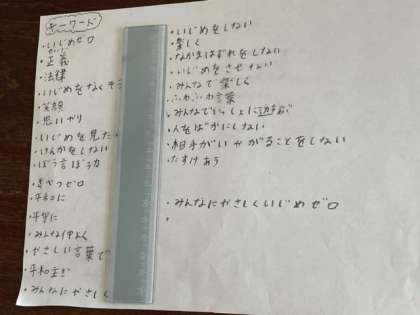 キーワード
・いじめゼロ
・正義
せいぎ
・法律
・いじめをなくそ
・笑顔
・思いやり
・いじめを見た
・けんかをしない
・ぼう言ぼう力
・差べつゼロ
・平和に
・平等に
・みんな仲よく
・やさしい言葉で
・平和主ぎ
・みんなにやさしく
・いじめをしない
・楽しく
・なかまはずれをしない
・いじめをさせない
・みんなで楽しく
・ふわふわ言葉
・みんなでいっしょに遊ぶ
・人をばかにしない
・相手がいやがることをしない
・たすけあう
・みんなにやさしくいじめゼロ